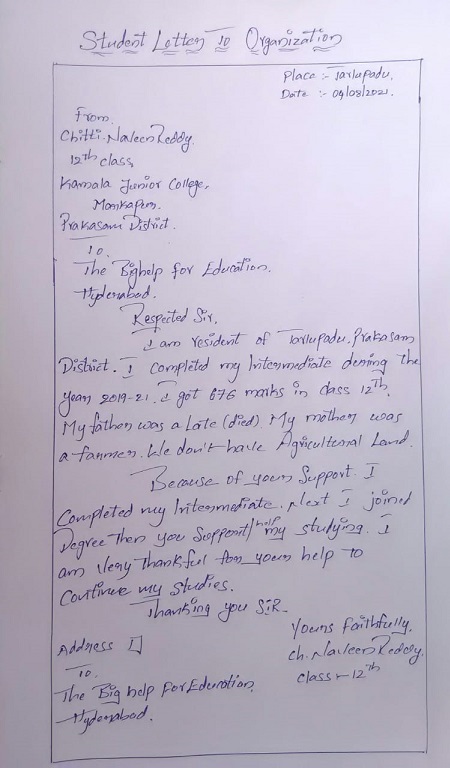 Student Letter To Organization
Place :- Tarlupadu.
Date :- 04/08/2021.
From
Chitti. Naveen Reddy
12th class,
Kamala Junior College,
Markapur,
Prakasam District.
To.
The Bighelp for Education.
Hyderabad.
Respected Sir,
I am resident of Tarlupadu, Prakasam
District. I completed my Intermediate during the
year 2019-21. I got 676 marks in class 12th.
My father was a Late (died). My mother was
a farmer. We don't have Agricultural Land.
Because of your Support. I
Completed my Intermediate. Next I joined
Degree Then you Support/help my studying. I
am very thankful for your help to
Continue my studies.
Thanking you SiR-
Yours faithfully,
ch. Naveen Reddy.
class - 12th
Address
To.
The Big help For Education
Hyderabad.